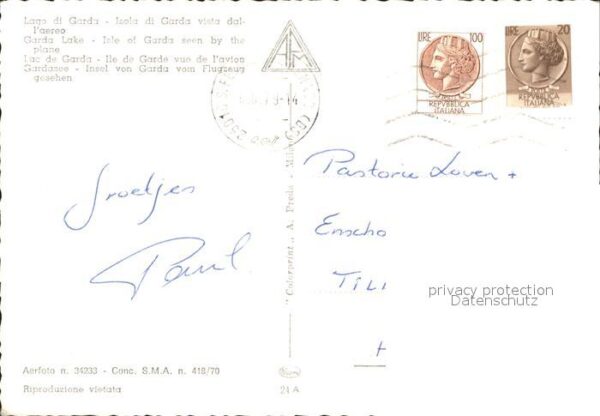 Lago di Garda - Isola di Garda vista dal-
l'aereo
Garda Lake - Isle of Garda seen by the
plane
Lac de Garda - Ile de Garde vue de l'avion
Gardasee - Insel von Garda vom Flugzeug
gesehen
AFM
LIRE 100
REPVBBLICA
ITALIANA
LIRE 20
REPVBBLICA
ITALIANA
Groetjes
Paul.
Pastorie Loven +
Enscho
TILI
+
privacy protection
Datenschutz
"Colorprint" A. Preda - Milano
Aerfoto n. 34233 - Conc. S.M.A. n. 418/70
Riproduzione vietata
21 A